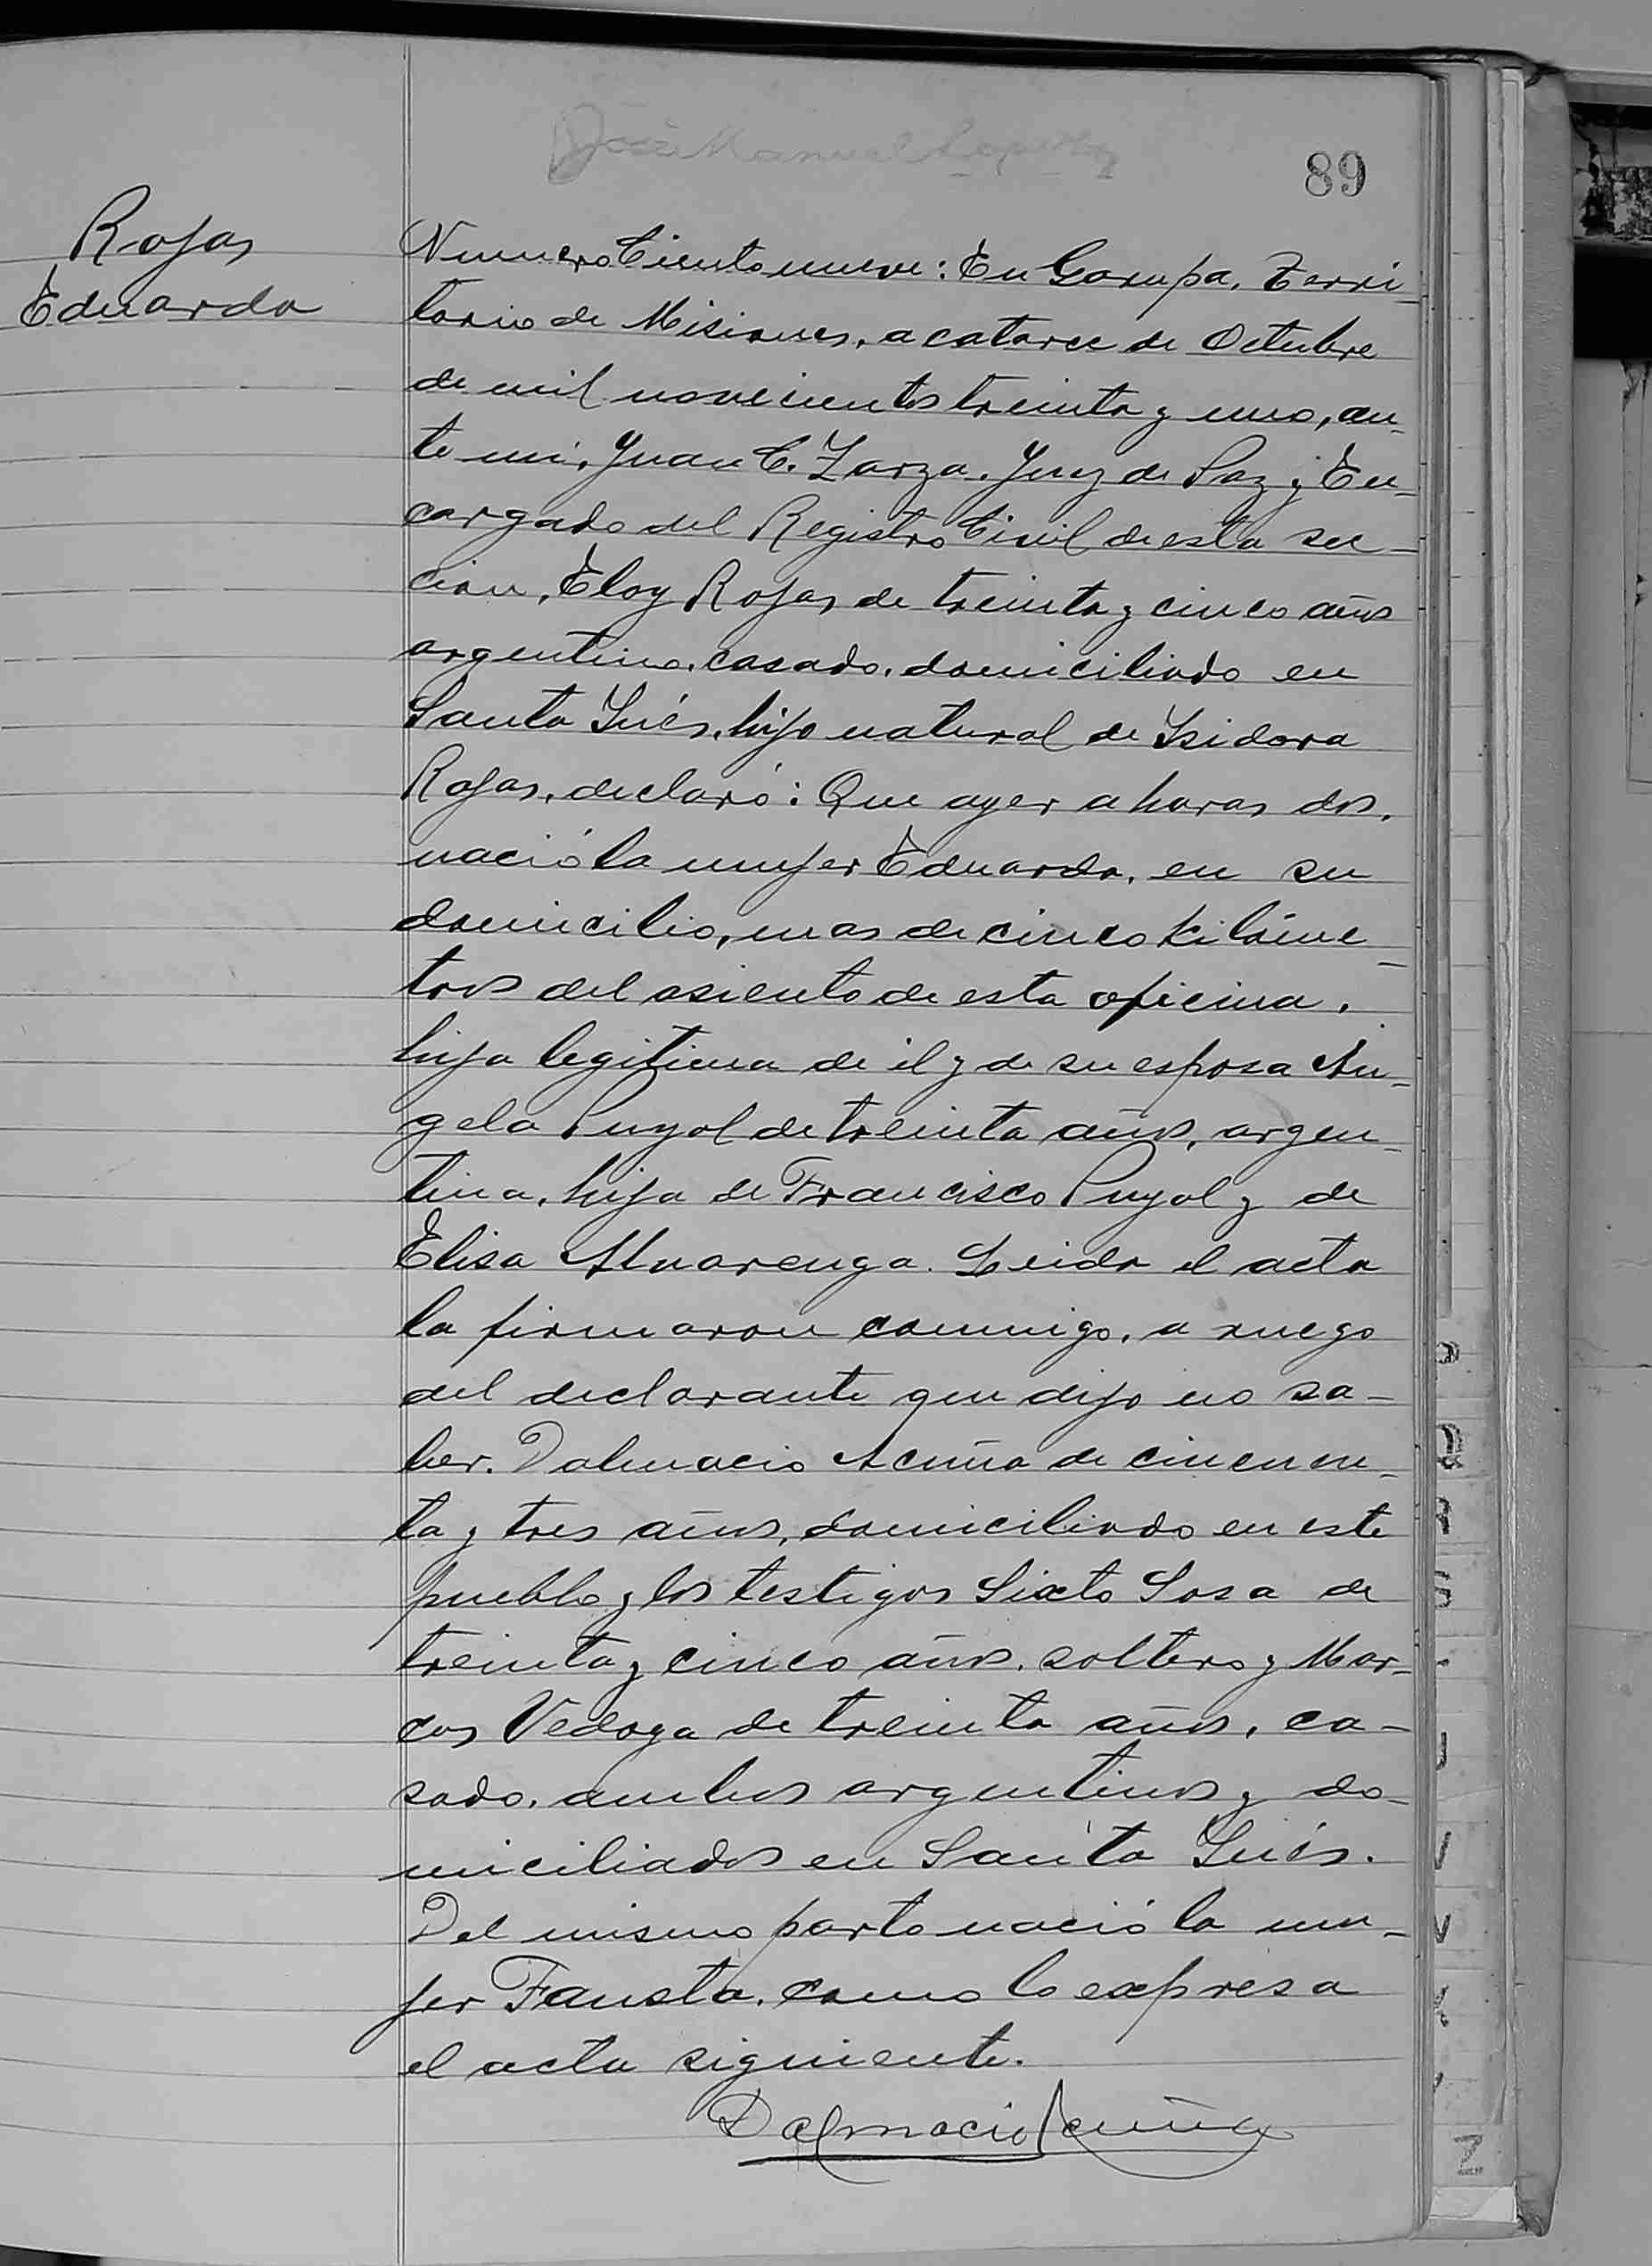 89
Rojas
Eduarda
Numero Ciento nueve: En Garupa, Terri-
torio de Misiones, a catorce de Octubre
de mil novecientos treinta y uno, an-
te mi, Juan C. Zarza, Juez de Paz y En-
cargado del Registro Civil de esta sec-
cion, Eloy Rojas de treinta y cinco años
argentino, casado, domiciliado en
Santa Inés, hijo natural de Isidora
Rojas, declaró: Que ayer a horas dos,
nació la mujer Eduarda, en su
domicilio, mas de cinco kilóme-
tros del asiento de esta oficina,
hija legitima de él y de su esposa An-
gela Puyol de treinta años, argen-
tina, hija de Francisco Puyol y de
Elisa Alvarenga. Leida el acta
la firmaron conmigo, a ruego
del declarante que dijo no sa-
ber. Dalmacio Acuña de cincuen-
ta y tres años, domiciliado en este
pueblo y los testigos Sixto Sosa de
treinta y cinco años, soltero y Mar-
cos Vedoya de treinta años, ca-
sado, ambos argentinos y do-
miciliados en Santa Inés.
Del mismo parto nació la mu-
jer Fausta, como lo expresa
el acta siguiente.
Dalmacio Acuña